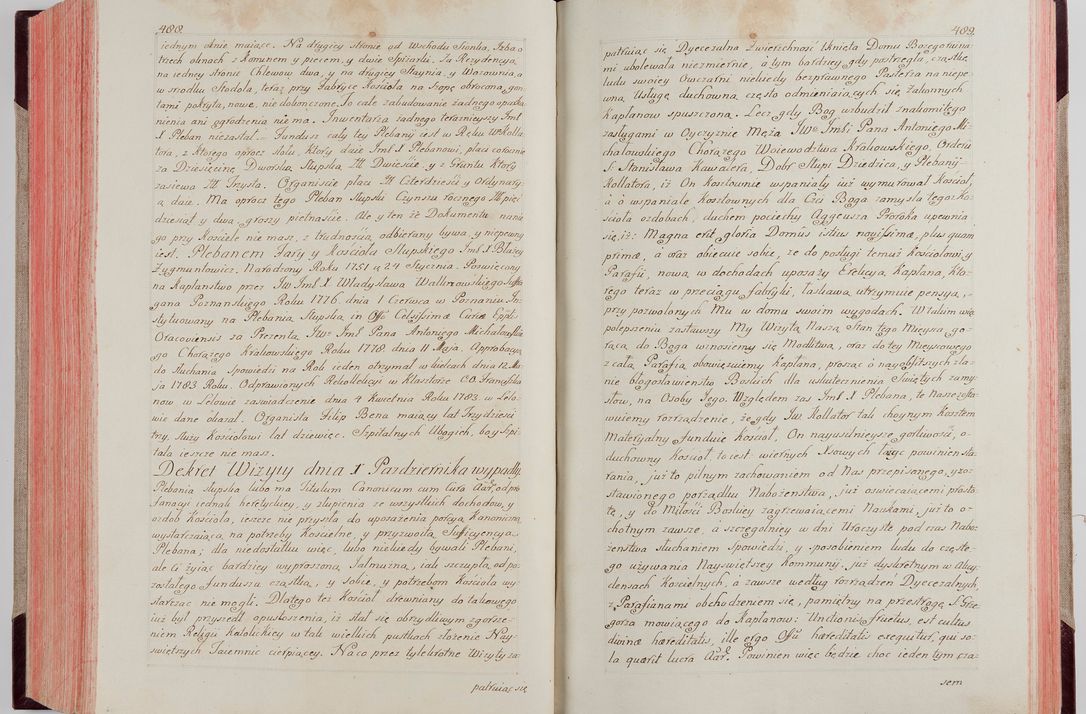 488.
iednym oknie maiące. Na drugiey stronie od Wschodu Sionka, Izba o
trzech oknach z kominem y piecem, y dwie Spizarki. Ta Rezydencya
na iedney stronie Chlewow dwa, y na drugiey Staynia, y Wozownia, a
w srodku Stodoła, teraz przy Fabryce Kościoła na szopę obrocona, gon
tami pokryta, nowe, niedokonczone. To całe zabudowanie żadnego oparka
nienia ani ogrodzenia nie ma. Inwentarza żadnego teraznieyszy Jmć
X Pleban niezastał. Fundusz cały tey Plebanij iest w Ręku W Kolla
tora, z którego oprocz stołu, który daie Jmć X Plebanowi, płaci corocznie
za Dziesięcinę Dworską Słupską Zł Dwieście, y z Gruntu który
zasiewa Zł Trzysta. Organiście płaci Zł Czterdzieści y Ordynary
ą daie. Ma oprocz tego Pleban Słupski Czynszu rocznego Zł pięć
dziesiąt y dwa, groszy pietnaście. Ale y ten że Dokumentu na nie
go przy Kościele nie masz, z trudnością odbierany bywa, y niepewny
iest. Plebanem Fary y Kościoła Słupskiego Jmć X Błażey
Zygmuntowicz. Narodzony Roku 1751 a 24 Stycznia. Poswięcony
na Kapłanstwo przez Jw Jmć X Władysława Walknowskiego Suffra
gana Poznanskiego Roku 1776. dnia 1 Czerwca w Poznaniu. In
stytuowany na Plebanią Słupską in Offo Celsissimæ Curiæ Eppli
Cracoviensis za Prezentą Jwo Jmć Pana Antoniego Michałowskie
go Chorążego Krakowskiego Roku 1778. dnia 11 Maja. Approbacyą
do słuchania Spowiedzi na Rok ieden otrzymał w Kielcach dnia 12 Ma
ja 1783 Roku. Odprawionych Rekollekcyi w Klasztorze OO. Franciszka
now w Lelowie zaswiadczenie dnia 4 Kwietnia Roku 1783. w Lelo
wie dane okazał. Organista Filip Bena maiący lat Trzydzieści
trzy, służy Kościołowi lat dziewięc. Szpitalnych Ubogich, bo y Szpi
tala ieszcze nie masz.
Dekret Wizyty dnia X Pazdziernika wypadły
Plebania słupska lubo ma Titulum Canonicum cum Cura Aar, od pro
fanacyi iednak heretyckiey, y złupienia ze wszystkich dochodow, y
ozdob Kościoła, ieszcze nie przyszła do uposażenia porcyą kanoniczną
wystarczaiącą, na potrzeby Kościelne, y przyzwoitą Sufficyencyą
Plebana; dla niedostatku więc, lubo niekiedy bywali Plebani,
ale Ci żyiąc bardziey wyproszoną Jałmużną, iak szczupłą od po
zostałego funduszu cząstką, y sobie, y potrzebom Kościoła wy
starczac nie mogli. Dlatego też Kościoł drewniany do takowego
już był przyszedł opustoszenia, iż stał się obrzydliwym zgorsze
niem Religii Katolickiey w tak wielkich pustkach złożenie Nay
swiętrzych Taiemnic cierpiącey. Na co przez tylekrotne Wizyty za
patruiąc się

489
patruiąc się Dyecezalna Zwierzchność tknięta Domu Bożego ruina
mi ubolewała niezmiernie, a tym bardziey gdy postrzegła, cząstkę
ludu swoiey Owczarni niekiedy bezprawnego Pasterza na niepe
wną Usługę duchowną często odmieniaiących się Zakonnych
Kapłanow spuszczoną. Lecz gdy Bog wzbudził znakomitego
zasługami w Oyczyznie Męża Jwo Jmći Pana Antoniego Mi
chałowskiego Chorążego Woiewodztwa Krakowskiego, Orderu
S. Stanisława Kawalera, Dobr Słupi Dziedzica, y Plebanij
Kollatora, iż On kosztownie wspaniały już wymurował Kościoł,
a ó wspaniałe kosztownych dla Czći Boga zamyśla tegoż Ko
ścioła ozdobach, duchem pociechy Aggeusza Proroka upewnia
się, iż: Magna erit gloria Domus istius novissimæ, plus quam
primæ, a oraz obiecuie sobie, że do posługi temuż Kościołowi y
Parafii, nową w dochodach uposaży Erekcyą Kapłana, Kto
rego teraz w przeciągu fabryki, łaskawą utrzymuie pensyą,
przy pozwolonych Mu w domu swoim wygodach. W takim więc
polepszeniu zastawszy My Wizytą Naszą Stan tego Mieysca go
rącą do Boga winosiemy się Modlitwą, oraz do tey Mieyscowego
z całą Parafią obowięzuiemy Kapłana, prosząc o nayobfitszych zla
nie błogosławieństw Boskich dla uskutecznienia Swiętych zamy
słow, na Osoby Jego. Względem zaś Jmć X Plebana, te Nasze zosta
wuiemy rozrządzenie, że gdy Jw Kollator tak hoynym Kosztem
Materyalny funduie Kościoł, On nayusilnieysze gorliwości, o
duchowny Kościoł, to iest wiernych Xsowych łącze powinien sta
rania, już to pilnym zachowaniem od Nas przepisanego, y zo
stawionego porządku Nabożenstwa, już oswiecaiącemi prosto
tę, y do Miłości Boskiey zagrzewaiącemi Naukami, już to o
chotnym zawsze, a szczegolniey w dni Uroczyste pod czas Nabo
żenstwa słuchaniem Spowiedzi, y sposobieniem ludu do częste
go używania Nayświętszey Kommunij, już dyskretnym w Akcy
densach Kościelnych, a zawsze według rozrządzeń Dyecezalnych
z Parafianami obchodzeniem się, pamiętny na przestrogę S. Grze
gorza mowiącego do Kapłanow: Unctionis fructus, est cultus
divinæ hæreditatis, ille ergo Offu hæreditatis exequitur, qui so
la quærit lucra Aar. Powinien więc będzie choc ieden tym cza
sem